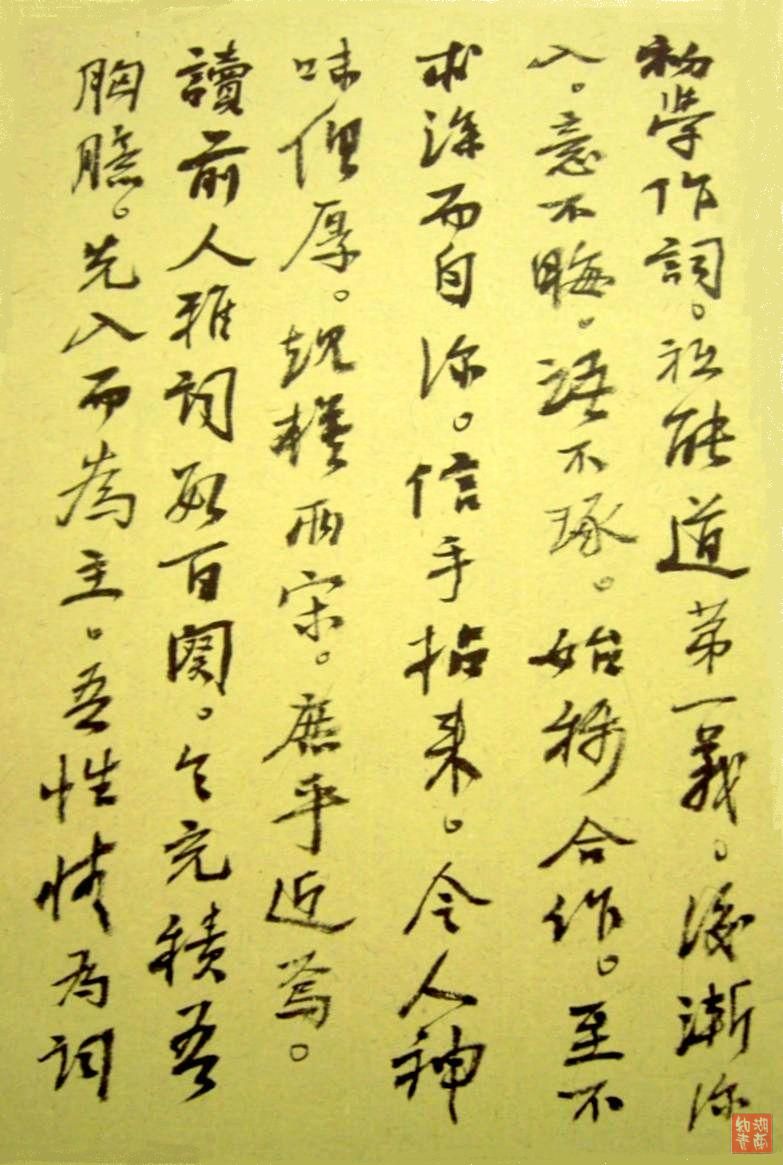 初學作詞。祗能道第一義。後漸深
入。意不晦。語不琢。始稱合作。至不
求深而自深。信手拈來。令人神
味俱厚。規橅兩宋。庶乎近焉。
讀前人雅詞數百闋。令充積吾
胸臆。先入而為主。吾性情為詞